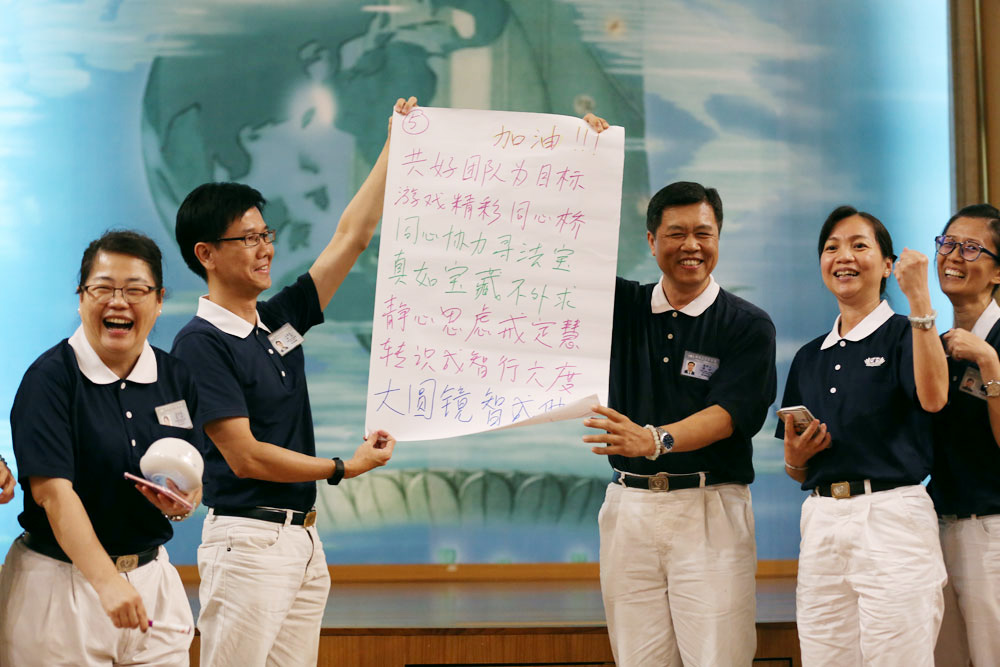 ⑤
加油!!!
共好团队为目标
游戏精彩同心桥
同心协力寻法宝
真如宝藏不外求
静心思虑戒定慧
转识成智行六度
大圓镜智成